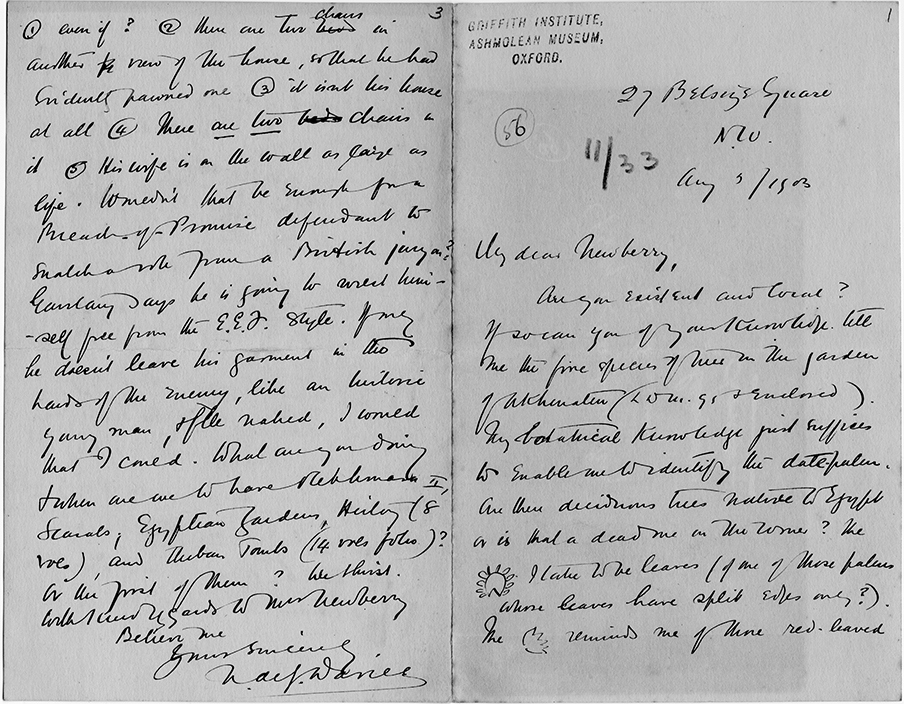 1
GRIFFITH INSTITUTE,
ASHMOLEAN MUSEUM,
OXFORD.
27 Belsize Square
N.W.
56
11/33
Aug 3/1903
My dear Newberry,
Are you existent and local?
If so can you of your knowledge tell
me the five species of tree in the garden
of Akhenaten (& enclosed).
My botanical knowledge just suffices
to enable me to identify the date palm.
Are there deciduous trees native to Egypt
or is that a dead one in the corner? The
I take to be leaves (of one of those palms
whose leaves have split edges only?).
The reminds me of those red-leaved
3
① even if? ② there are two chairs in
another view of the house, so that he had
evidently pawned one ③ it isnt his house
at all ④ There are two chairs in
it ⑤ His wife is on the wall as large as
life. Wouldn't that be enough for a
Breach-of-Promise defendant to
snatch a vote from a British jury?
Garstang says he is going to wrest him-
-self free from the E.E.F. style. If only
he doesn't leave his garment in the
hands of the enemy, like an historic
young man, & flee naked, I would
that I could. What are you doing
& when are we to have Rekhmara II,
Scarabs, Egyptian Gardens, History (8
vols) and Theban Tombs (14 vols folio)?
or the first of them? We thirst.
With kind regards to Mrs Newberry
Believe me
Yours sincerely
N. de G. Davies